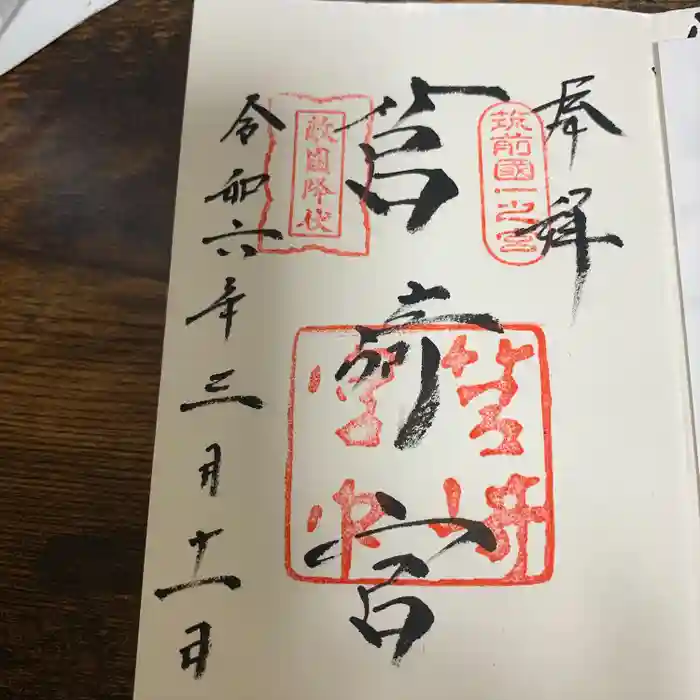 奉拝
筑前國一之宮
筥崎宮
敵國降伏
令和六年三月十一日